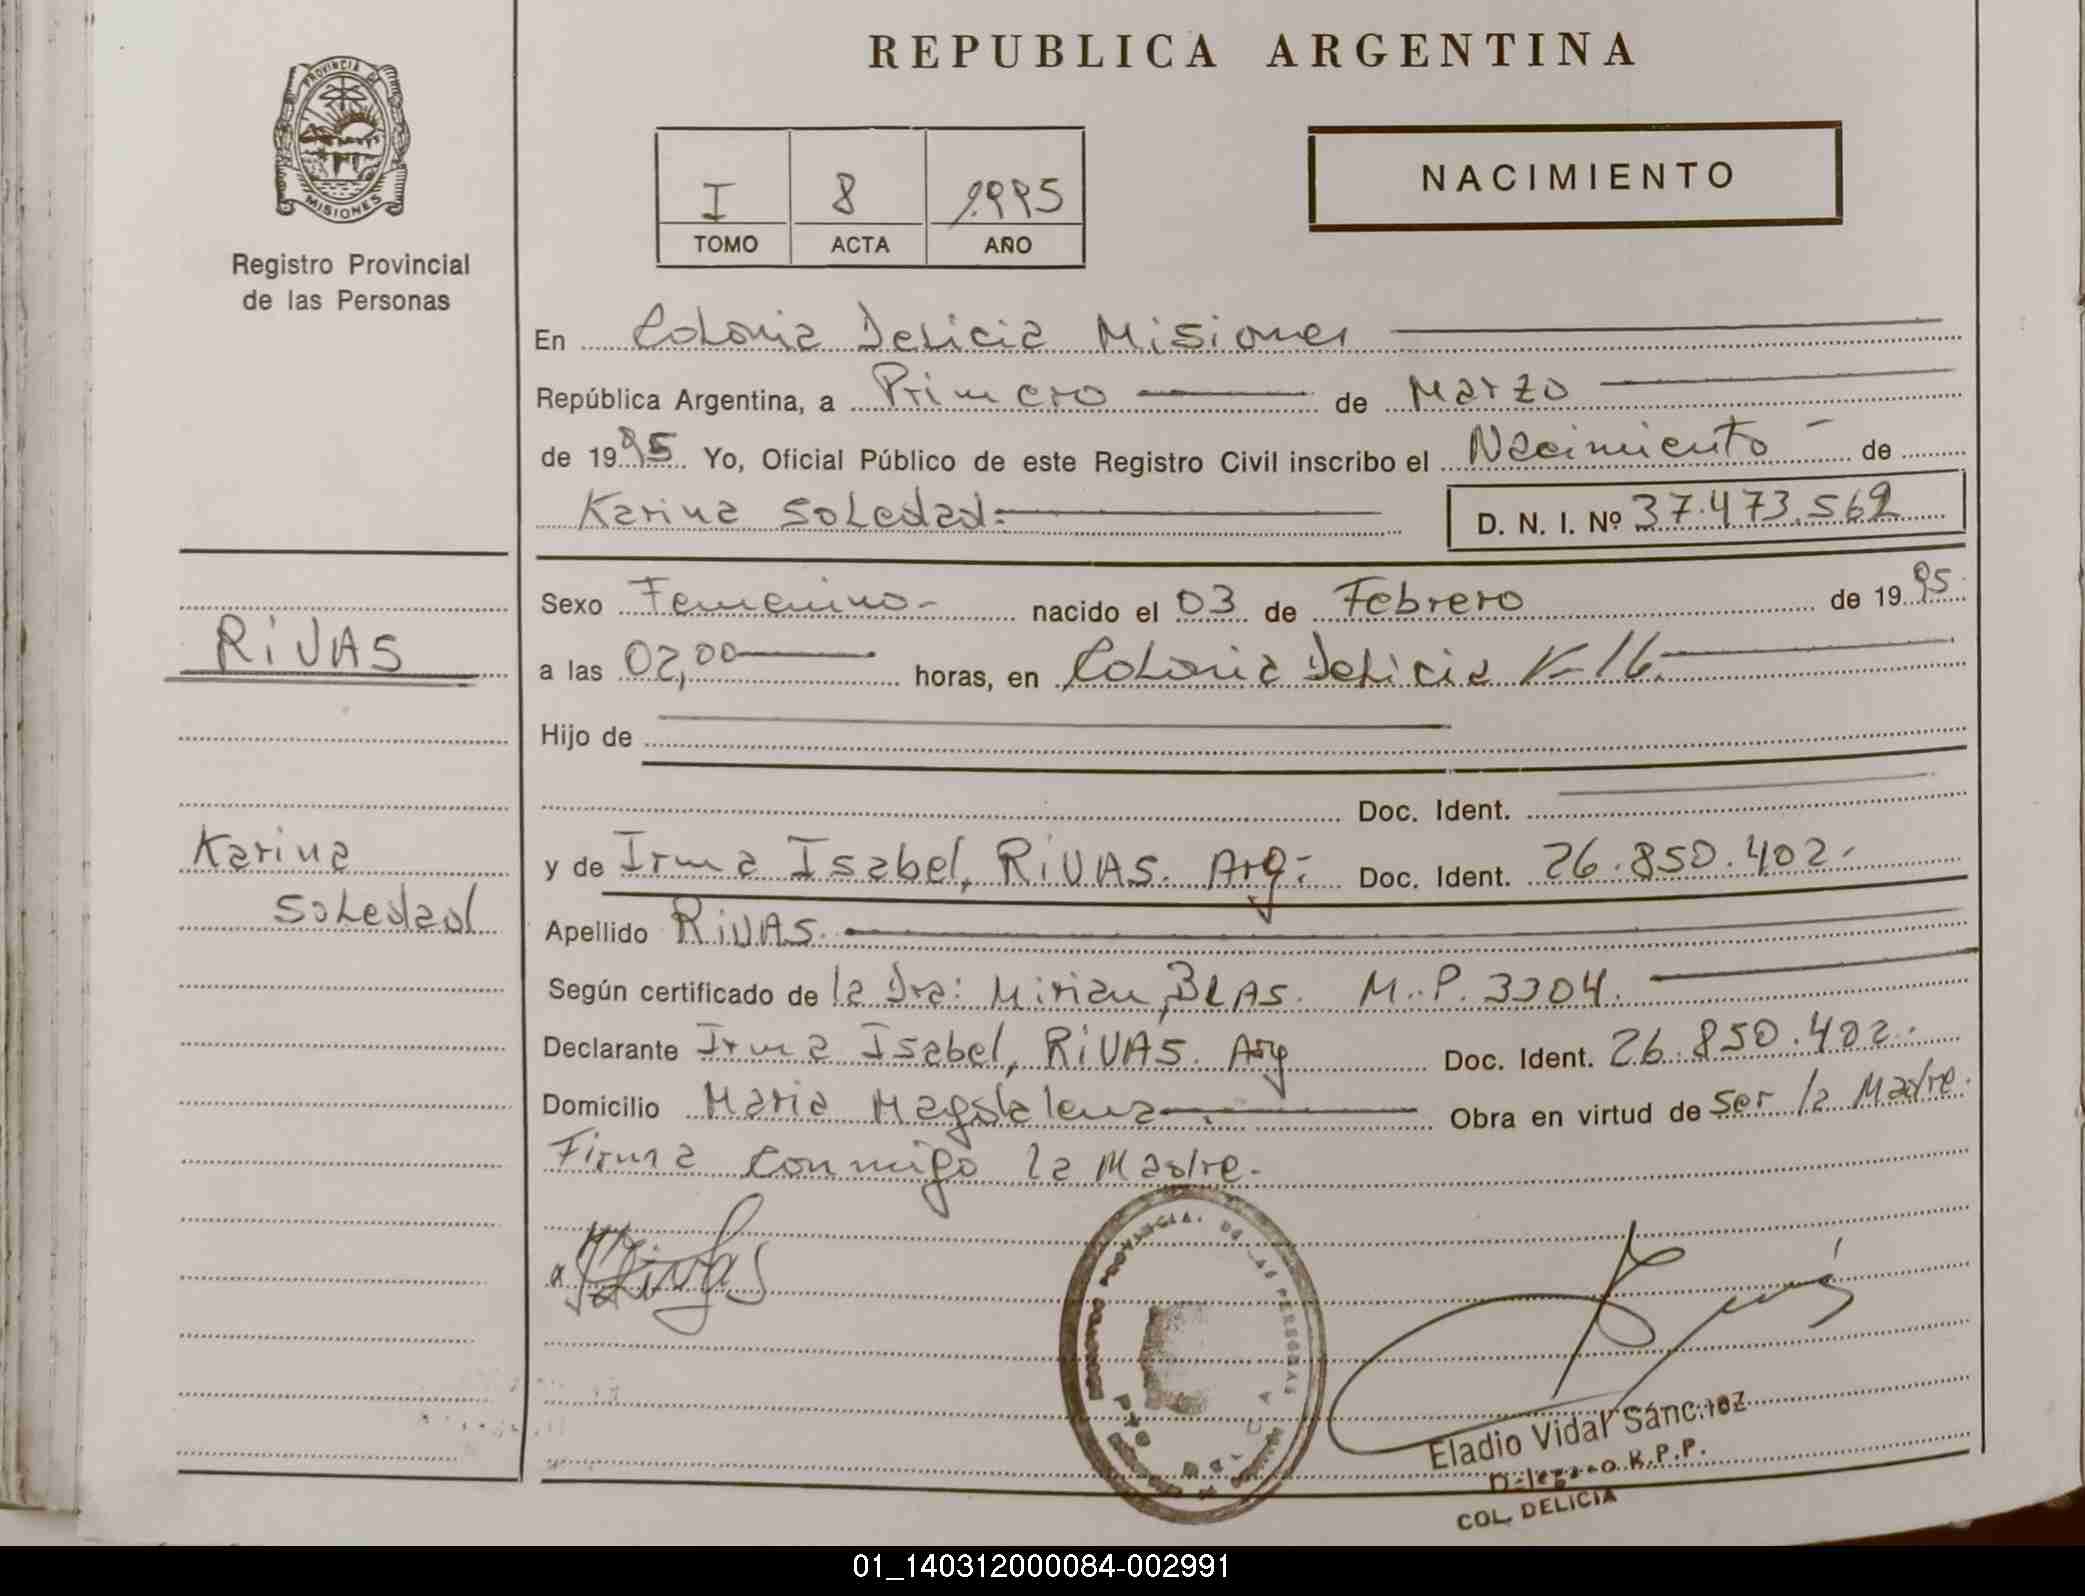 REPUBLICA ARGENTINA
PROVINCIA DE
MISIONES
Registro Provincial
de las Personas
I 8 1995
TOMO ACTA AÑO
NACIMIENTO
En Colonia Delicia Misiones
República Argentina, a Primero de Marzo
de 1995 Yo, Oficial Público de este Registro Civil inscribo el Nacimiento de
Karina Soledad.
D. N. I. Nº 37.473.562
Sexo Femenino- nacido el 03 de Febrero de 1995.
RiVAS
a las 02,00 horas, en Colonia Delicia K-16.
Hijo de
Doc. Ident.
Karina
Soledad
y de Irma Isabel, RiVAS. Arg.- Doc. Ident. 26.850.402.-
Apellido RiVAS.
Según certificado de la Dra: Mirian, BLAS. M.P. 3304.
Declarante Irma Isabel, RiVAS. Arg Doc. Ident. 26.850.402.-
Domicilio Maria Magdalena Obra en virtud de Ser la Madre.
Firma conmigo la Madre.-
Rivas
Eladio Vidal Sánchez
Delegado R.P.P.
COL. DELICIA
01_140312000084-002991